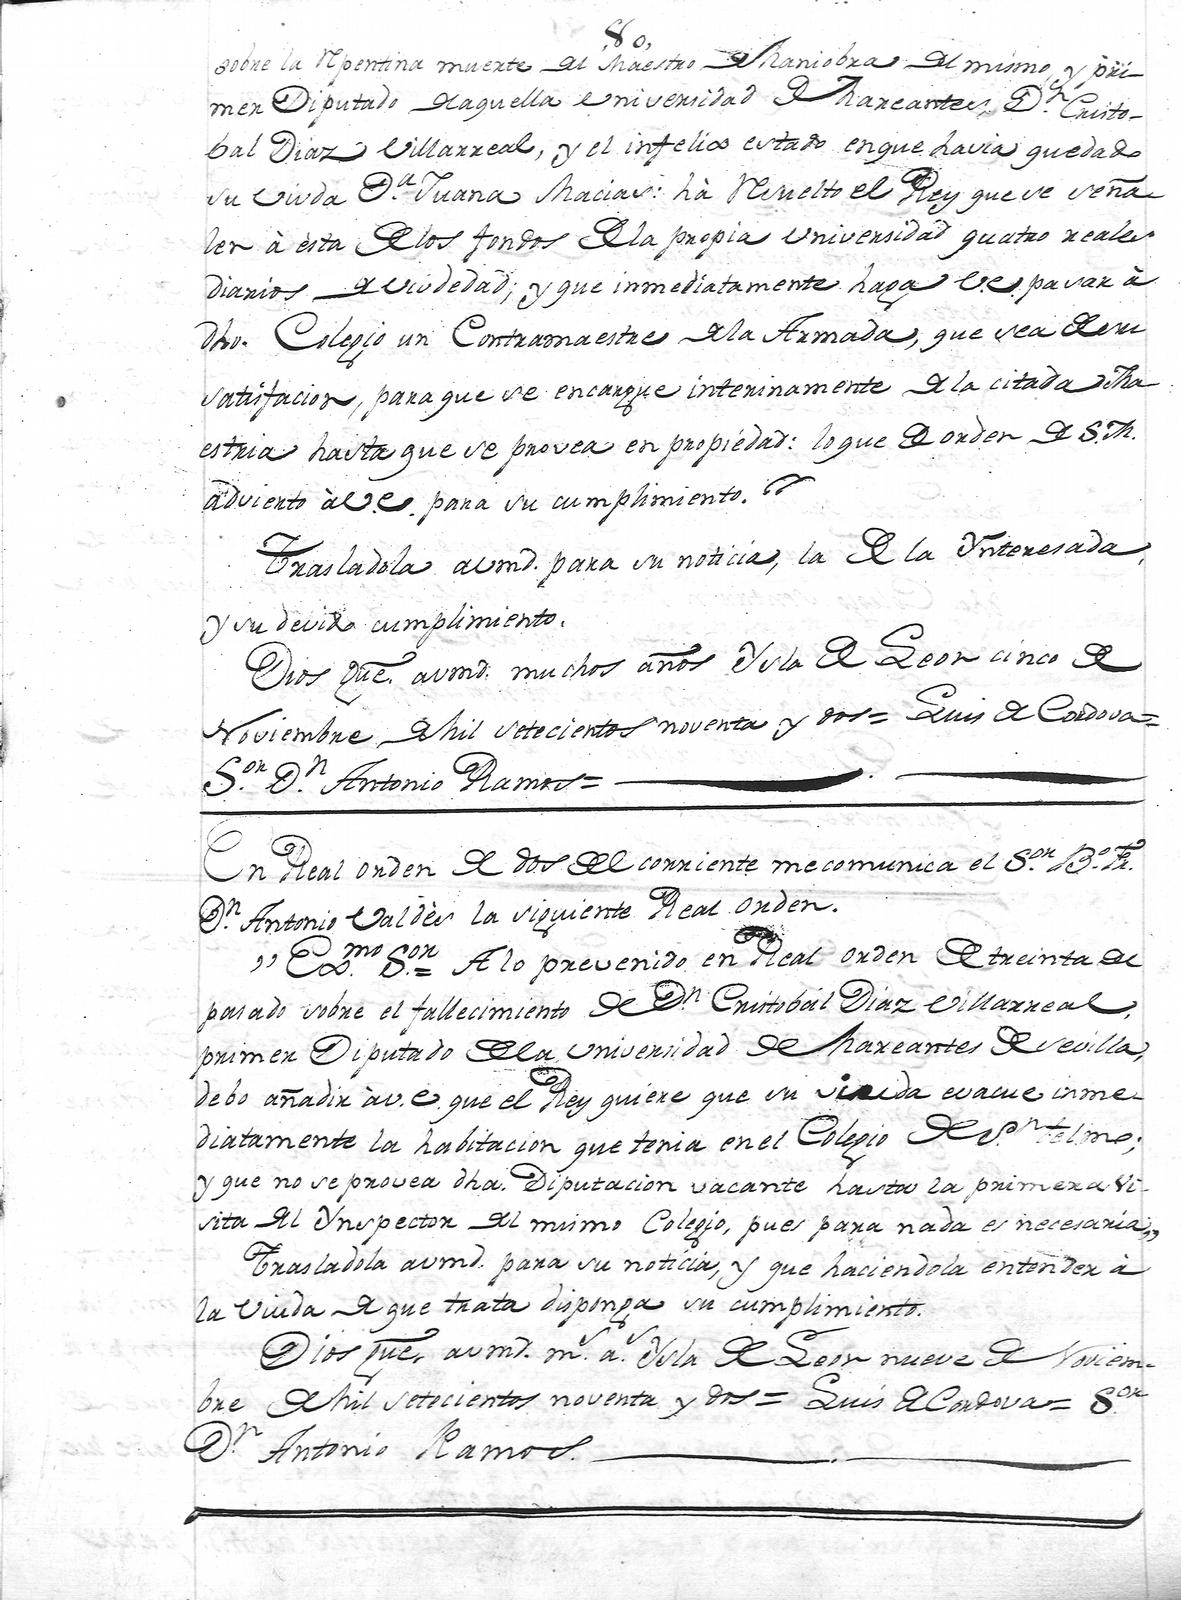 80,
sobre la Repentina muerte del Maestro de Maniobra del mismo, y pri-
mer Diputado de aquella Universidad de Mareantes, Dn. Cristo-
bal Diaz Villarreal, y el infelice estado en que havia quedado
su viuda Da. Juana Macias: hà Resuelto el Rey que se seña-
len à ésta de los fondos de la propia Universidad quatro reales
diarios de viudedad; y que inmediatamente haga V.E. pasar à
dho. Colegio un Contramaestre de la Armada, que sea de su
satisfacion, para que se encargue interinamente de la citada Ma-
estria hasta que se provea en propiedad: lo que de orden de S.M.
advierto à V.E. para su cumplimiento.
Trasladola a vmd. para su noticia, la de la Ynteresada,
y su devido cumplimiento.
Dios gue. a vmd. muchos años Ysla de Leon cinco de
Noviembre de Mil setecientos noventa y dos = Luis de Cordova =
Sor. Dn. Antonio Ramos =
En Real orden de dos del corriente me comunica el Sor. Bo. Fr.
Dn. Antonio Valdès la siguiente Real orden.
" Exmo. Sor. = A lo prevenido en Real orden de treinta de
pasado sobre el fallecimiento de Dn. Cristobal Diaz Villarreal,
primer Diputado de la Universidad de Mareantes de Sevilla,
debo añadir à V.E. que el Rey quiere que su viuda evacue inme-
diatamente la habitacion que tenia en el Colegio de Sn. Telmo;
y que no se provea dha. Diputacion vacante hasta la primera Vi-
sita del Ynspector del mismo Colegio, pues para nada es necesaria "
Trasladola a vmd. para su noticia, y que haciendola entender à
la Viuda de que trata disponga su cumplimiento.
Dios gue. a vmd. ms. as. Ysla de Leon nueve de Noviem-
bre de Mil setecientos noventa y dos = Luis de Cordova = Sor.
Dn. Antonio Ramos.